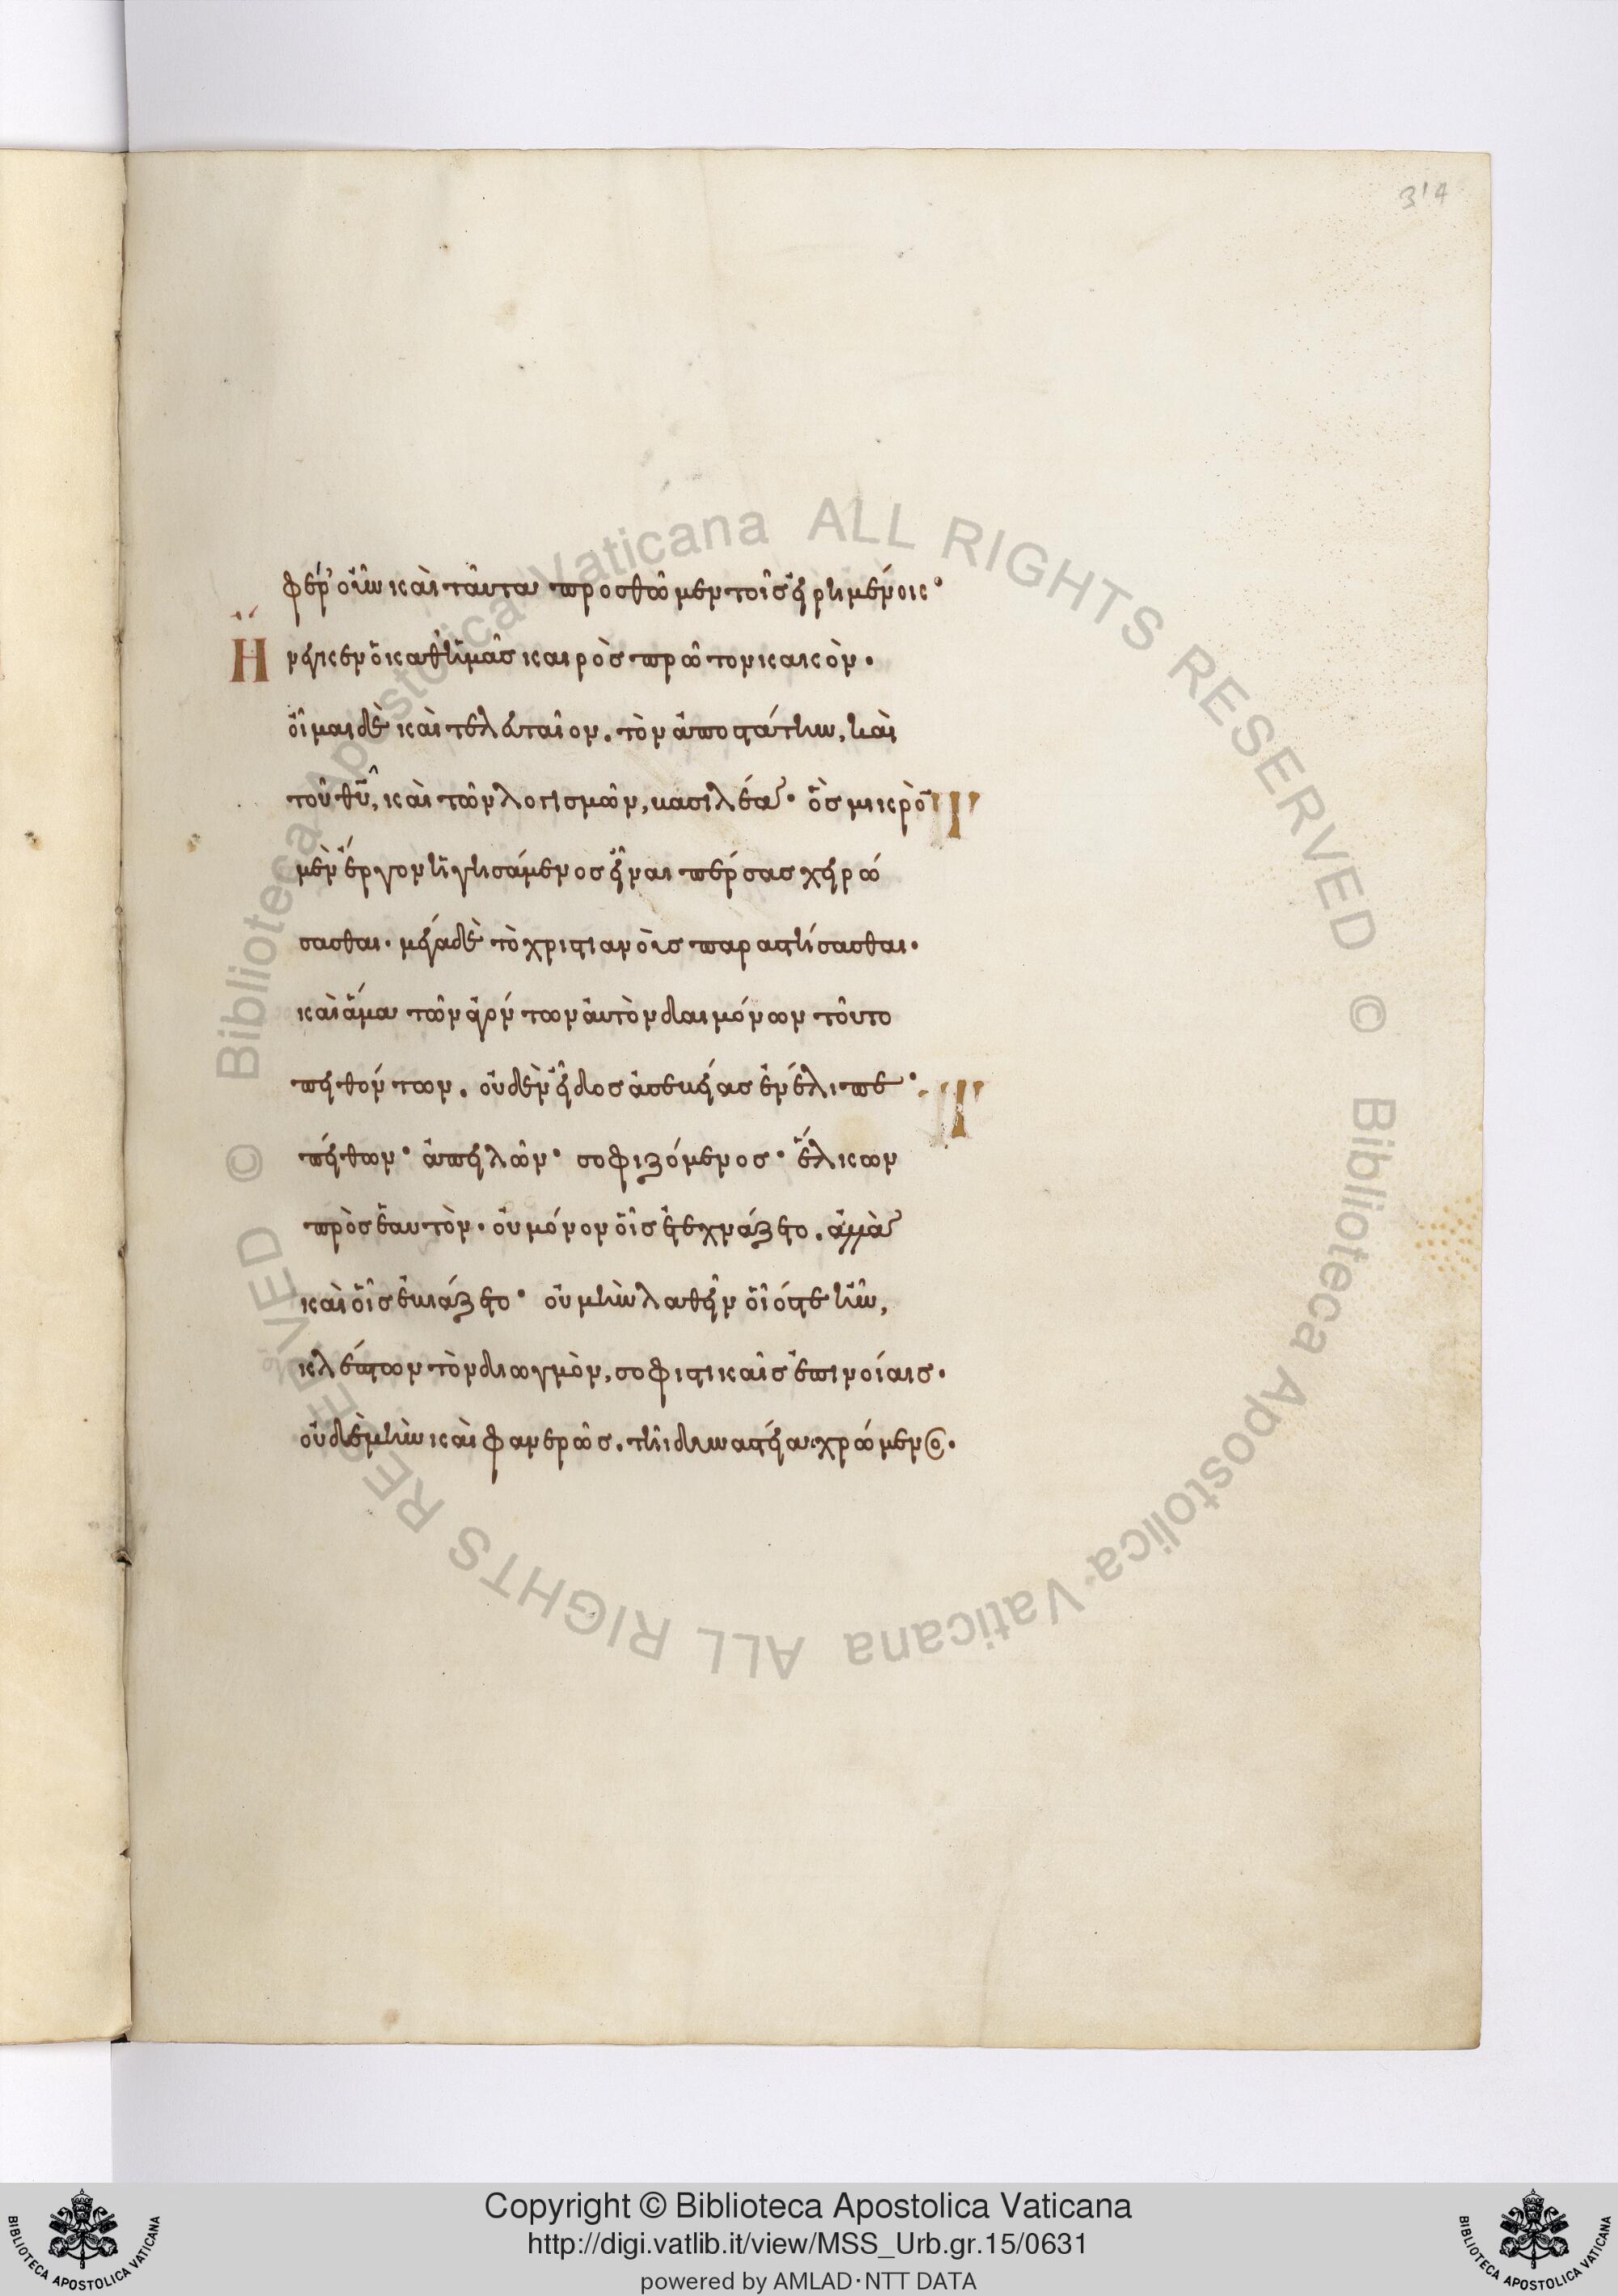 314
φέρ' οὖν καὶ ταῦτα προσθῶμεν τοῖς εἰρημένοις·
Ἤ
νεγκεν ὁ καθ' ἡμᾶς καιρὸς πρῶτον κακὸν.
οἶμαι δὲ καὶ τελευταῖον. τὸν ἀποστάτην, καὶ
τοῦ θῦ, καὶ τῶν λογισμῶν, βασιλέα· ὃς μικρὸ
μὲν ἔργον ἡγησάμενος εἶναι πέρσας χειρώ
σασθαι. μέγα δὲ τὸ χριστιανοὺς παραστήσασθαι.
καὶ ἅμα τῶν ἀγόντων αὐτὸν δαιμόνων τοῦτο
πειθόντων. οὐδὲν εἶδος ἀσεβείας ἐνέλιπε·
πείθων· ἀπειλῶν· σοφιζόμενος· ἕλκων
πρὸς ἑαυτὸν. οὐ μόνον οἷς ἐτεχνάζετο. ἀλλὰ
καὶ οἷς ἐβιάζετο· οὐ μὴν λαθεῖν οἷός τε ἦν,
κλέπτων τὸν διωγμὸν, σοφιστικαῖς ἐπινοίαις.
οὐδὲ μὴν καὶ φανερῶς. τῆι δυναστείαι χρώμενος.
© Biblioteca Apostolica Vaticana ALL RIGHTS RESERVED © Biblioteca Apostolica Vaticana ALL RIGHTS RESERVED
Copyright © Biblioteca Apostolica Vaticana
http://digi.vatlib.it/view/MSS_Urb.gr.15/0631
powered by AMLAD·NTT DATA
BIBLIOTECA APOSTOLICA VATICANA
BIBLIOTECA APOSTOLICA VATICANA